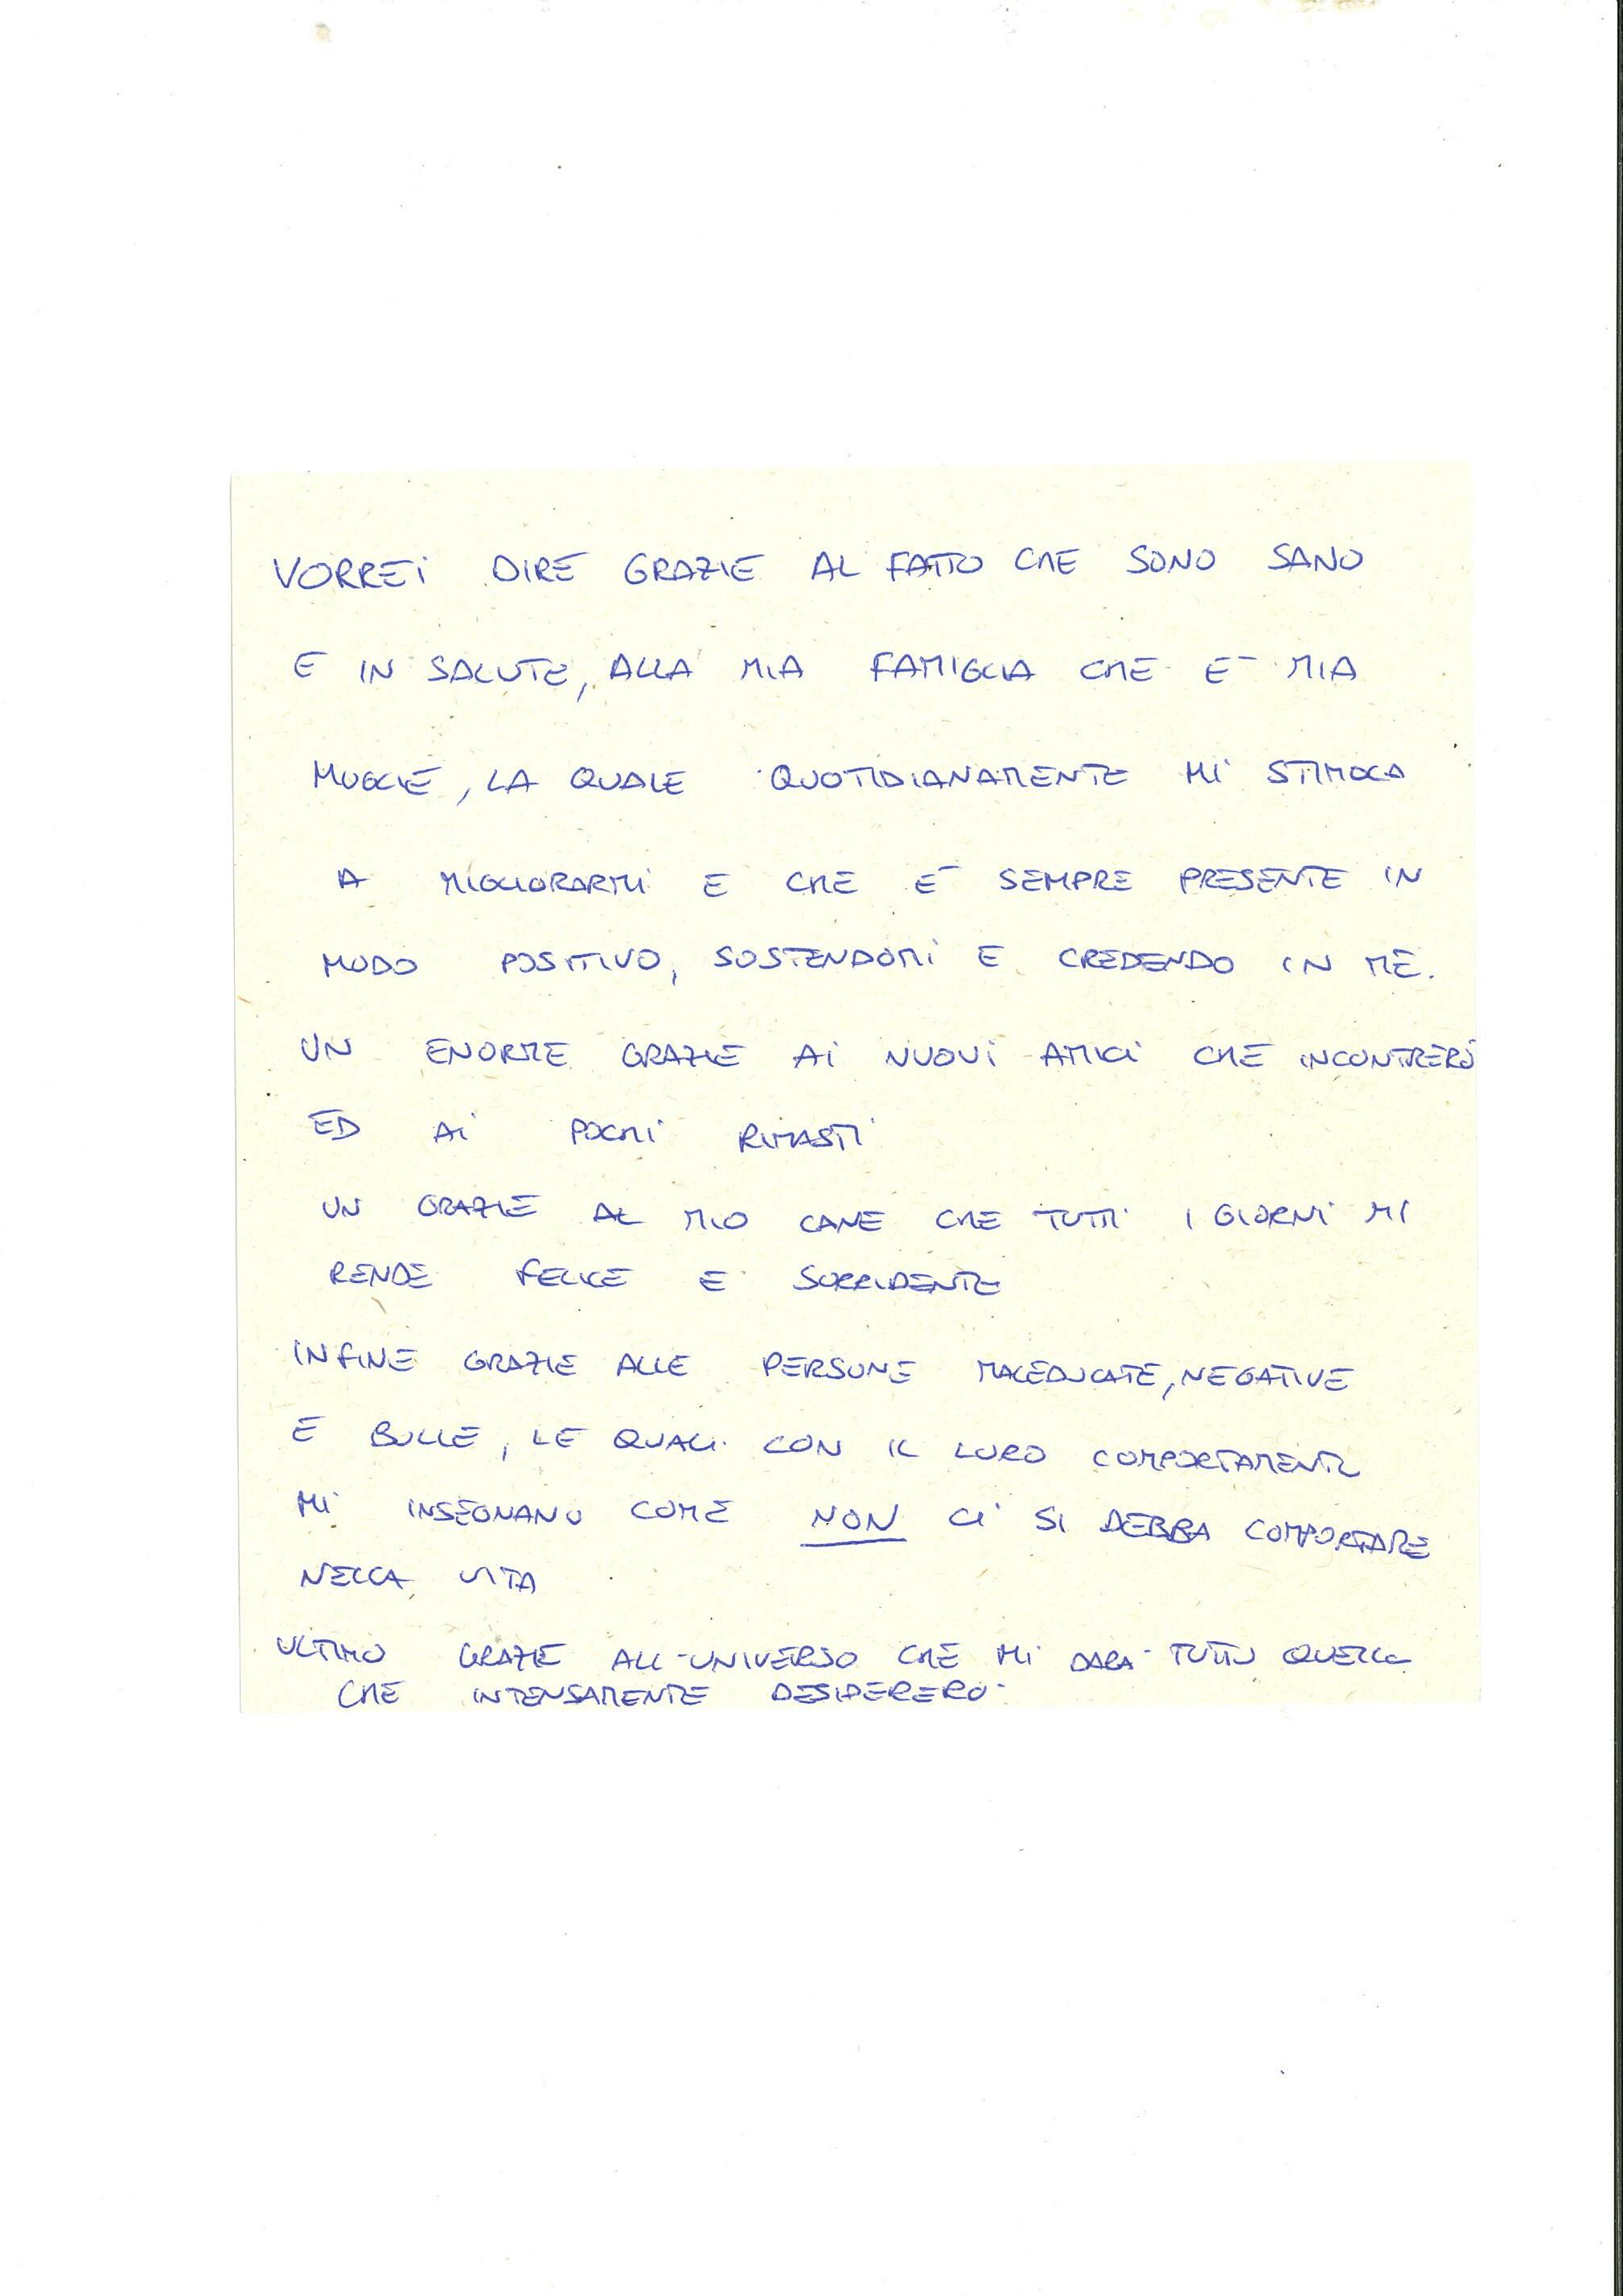 VORREI DIRE GRAZIE AL FATTO CHE SONO SANO
E IN SALUTE, ALLA MIA FAMIGLIA CHE E' MIA
MOGLIE, LA QUALE QUOTIDIANAMENTE MI STIMOLA
A MIGLIORARMI E CHE E' SEMPRE PRESENTE IN
MODO POSITIVO, SOSTENDOMI E CREDENDO IN ME.
UN ENORME GRAZIE AI NUOVI AMICI CHE INCONTRERÒ
ED AI POCHI RIMASTI
UN GRAZIE AL MIO CANE CHE TUTTI I GIORNI MI
RENDE FELICE E SORRIDENTE
INFINE GRAZIE ALLE PERSONE MALEDUCATE, NEGATIVE
E BULLE, LE QUALI CON IL LORO COMPORTAMENTO
MI INSEGNANO COME NON CI SI DEBBA COMPORTARE
NELLA VITA
ULTIMO GRAZIE ALL'UNIVERSO CHE MI DARA' TUTTO QUELLO
CHE INTENSAMENTE DESIDERERO'